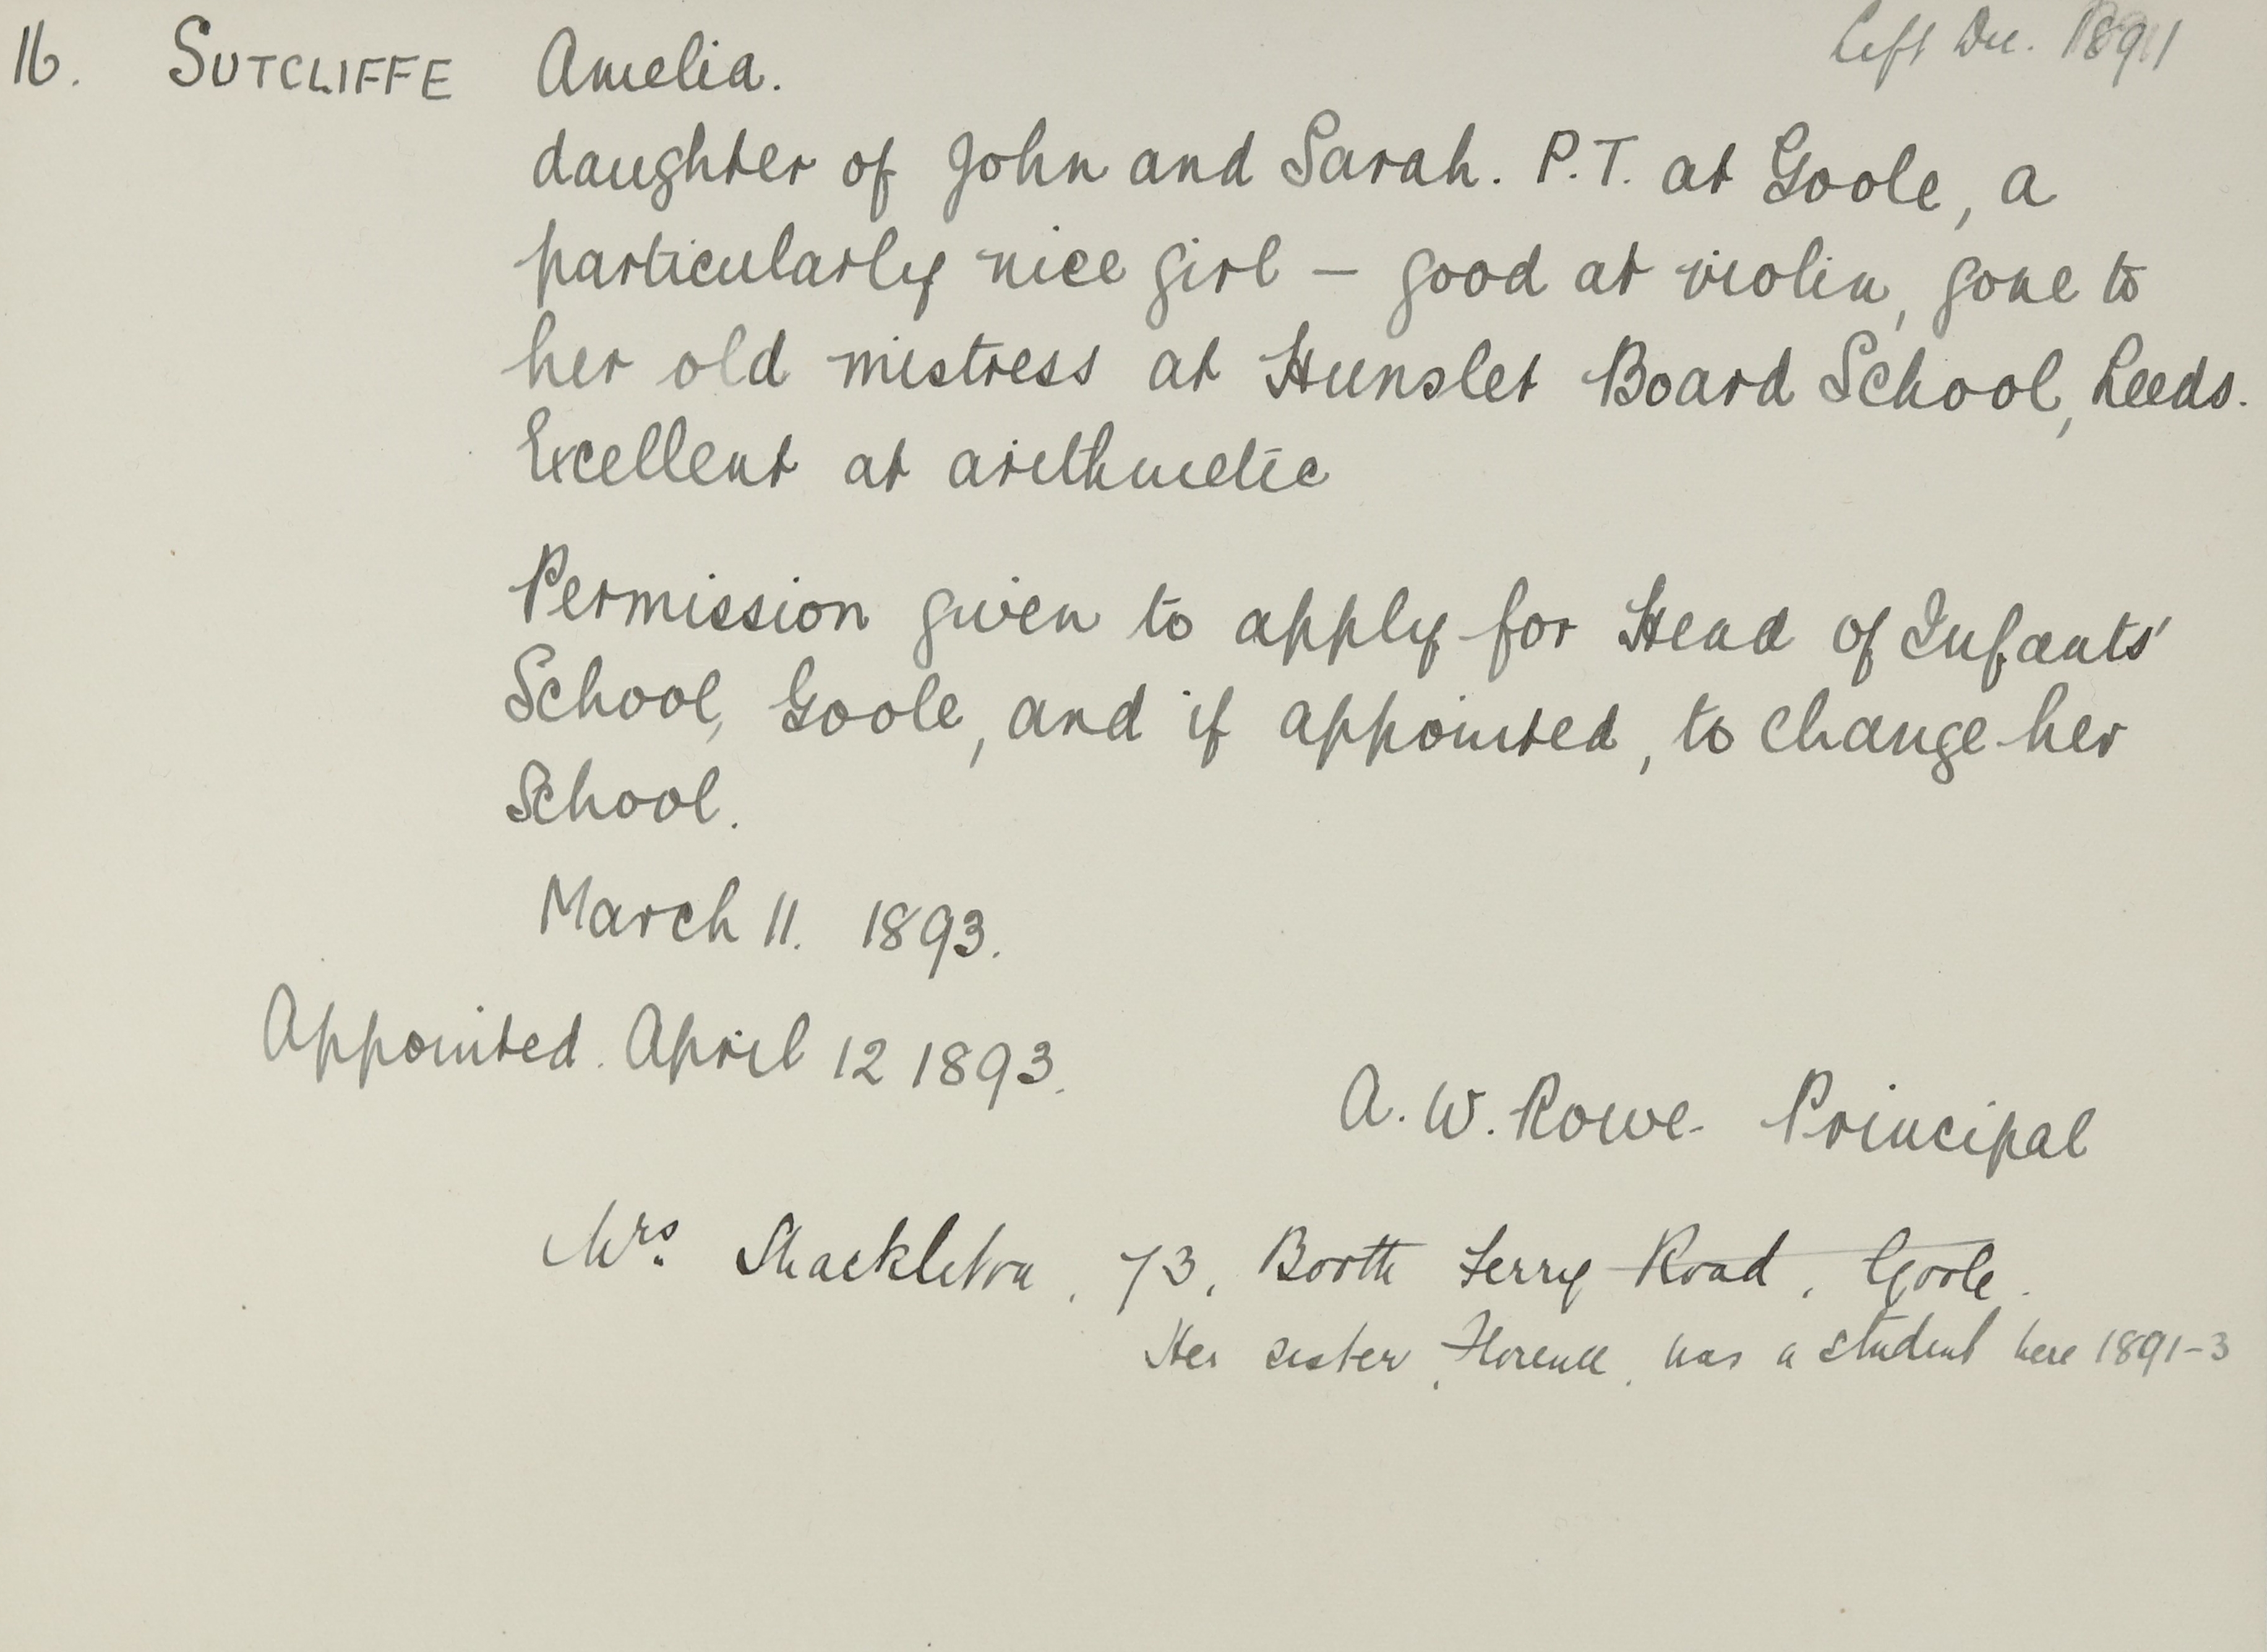 16. SUTCLIFFE Amelia. Left Dec. 1891
daughter of John and Sarah. P.T. at Goole, a
particularly nice girl – good at violin, gone to
her old mistress at Hunslet Board School, Leeds.
Excellent at arithmetic
Permission given to apply for Head of Infants'
School, Goole, and if appointed, to change her
School.
March 11. 1893.
Appointed. April 12 1893.
A. W. Rowe. Principal
Mrs. Shackleton, 73, Booth Ferry Road, Goole.
Her sister, Florence, was a student here 1891-3